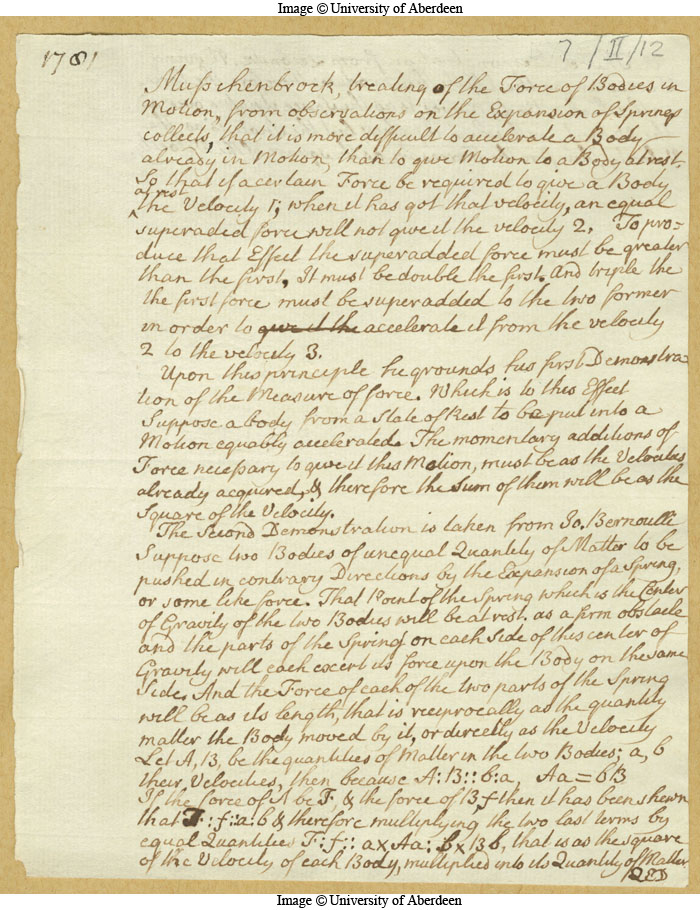 Image © University of Aberdeen
1781
7/II/12
Musschenbrock, treating of the Force of Bodies in
Motion, from observations on the Expansion of Springs
collects, that it is more difficult to accelerate a Body
already in Motion, than to give Motion to a Body at rest.
So that if a certain Force be required to give a Body
at rest
the Velocity 1; when it has got that velocity, an equal
superaded force will not give it the velocity 2. To pro-
duce that Effect the superadded force must be greater
than the first, It must be double the first. And triple the
the first force must be superadded to the two former
in order to give it the accelerate it from the velocity
2 to the velocity 3.
Upon this principle he grounds his first Demonstra
tion of the Measure of force. Which is to this Effect
Suppose a body from a State of Rest to be put into a
Motion equably accelerated. The momentary additions of
Force necessary to give it this Motion, must be as the Velocities
already acquired, & therefore the Sum of them will be as the
Square of the Velocity.
The Second Demonstration is taken from Jo. Bernoulli
Suppose two Bodies of unequal Quantity of Matter to be
pushed in contrary Directions by the Expansion of a Spring,
or some like force. That Point of the Spring which is the Center
of Gravity of the two Bodies will be at rest. as a firm obstacle
and the parts of the Spring on each side of this center of
Gravity will each excert its force upon the Body on the same
Side. And the Force of each of the two parts of the Spring
will be as its length, that is reciprocally as the quantity
matter the Body moved by it, or directly as the Velocity
Let A, B, be the quantities of Matter in the two Bodies; a, b
their Velocities, then because A:B::b:a, Aa=bB
If the force of A be F, & the force of B f then it has been shewn
that F:f::a:b & therefore multiplying the two last terms by
equal Quantities F:f:: a×Aa: b×Bb, that is as the square
of the Velocity of each Body, multiplied into its Quantity of Matter
QED
Image © University of Aberdeen